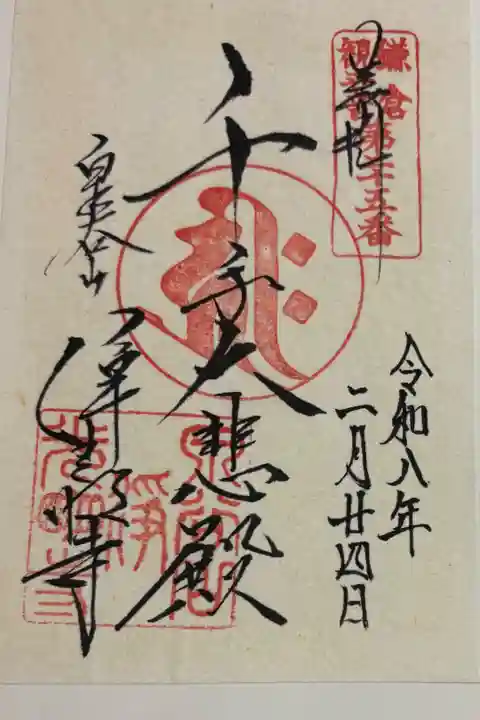 鎌倉
観音
第二十五番
奉拝
千手大悲殿
令和八年
二月廿四日
泉谷山
浄光明寺